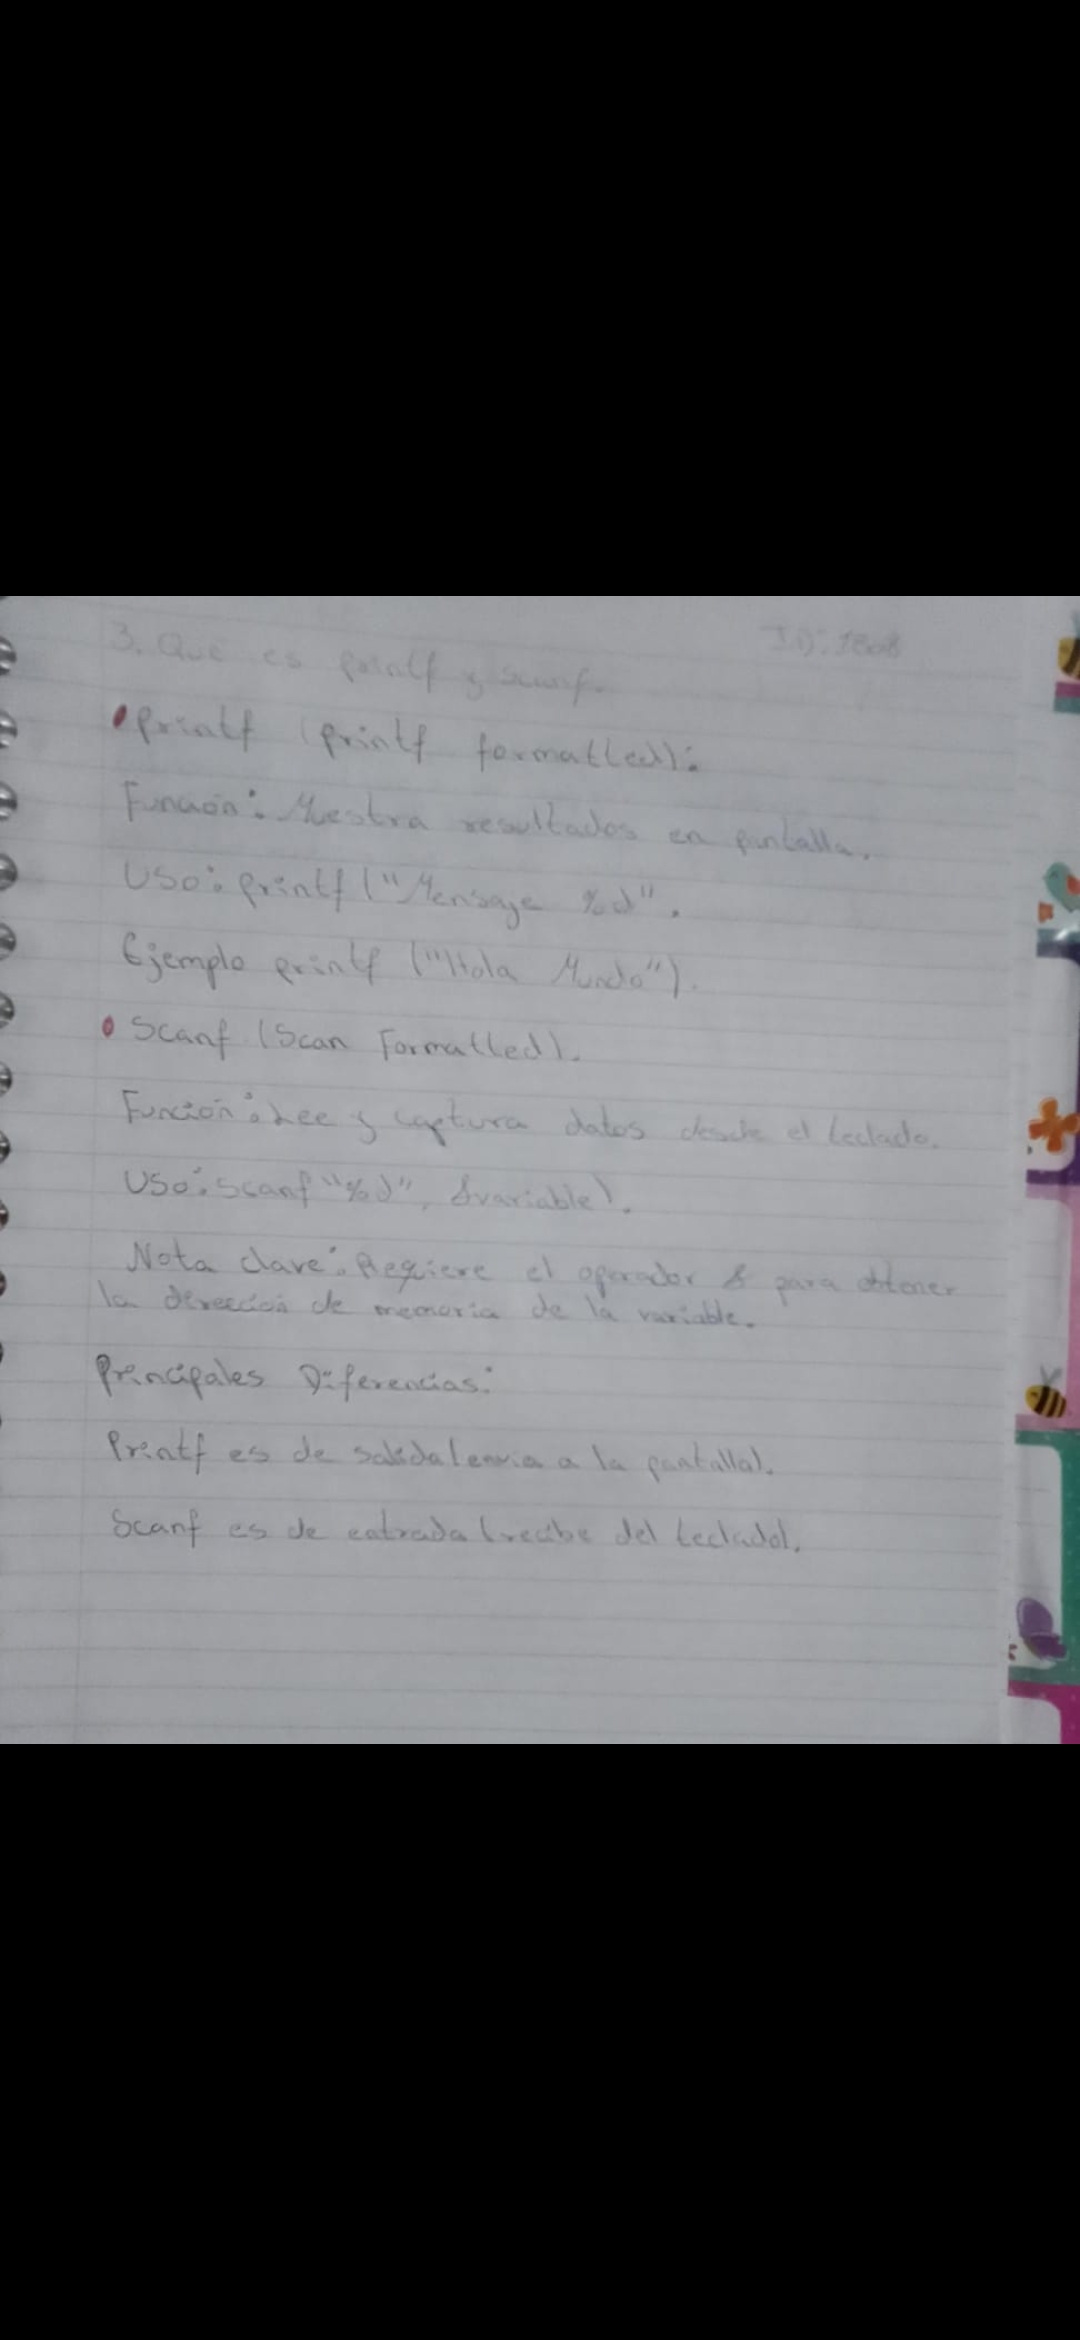 3. Que es printf y scanf.
ID: 1808
• Printf (printf formatted):
Función: Muestra resultados en pantalla.
Uso: printf ("Mensaje %d".
Ejemplo printf ("Hola Mundo").
• Scanf (Scan Formatted).
Función: Lee y captura datos desde el teclado.
Uso: Scanf "%d", &variable).
Nota clave: Requiere el operador & para obtener
la dirección de memoria de la variable.
Principales Diferencias:
Printf es de salida (envia a la pantalla).
Scanf es de entrada (recibe del teclado).